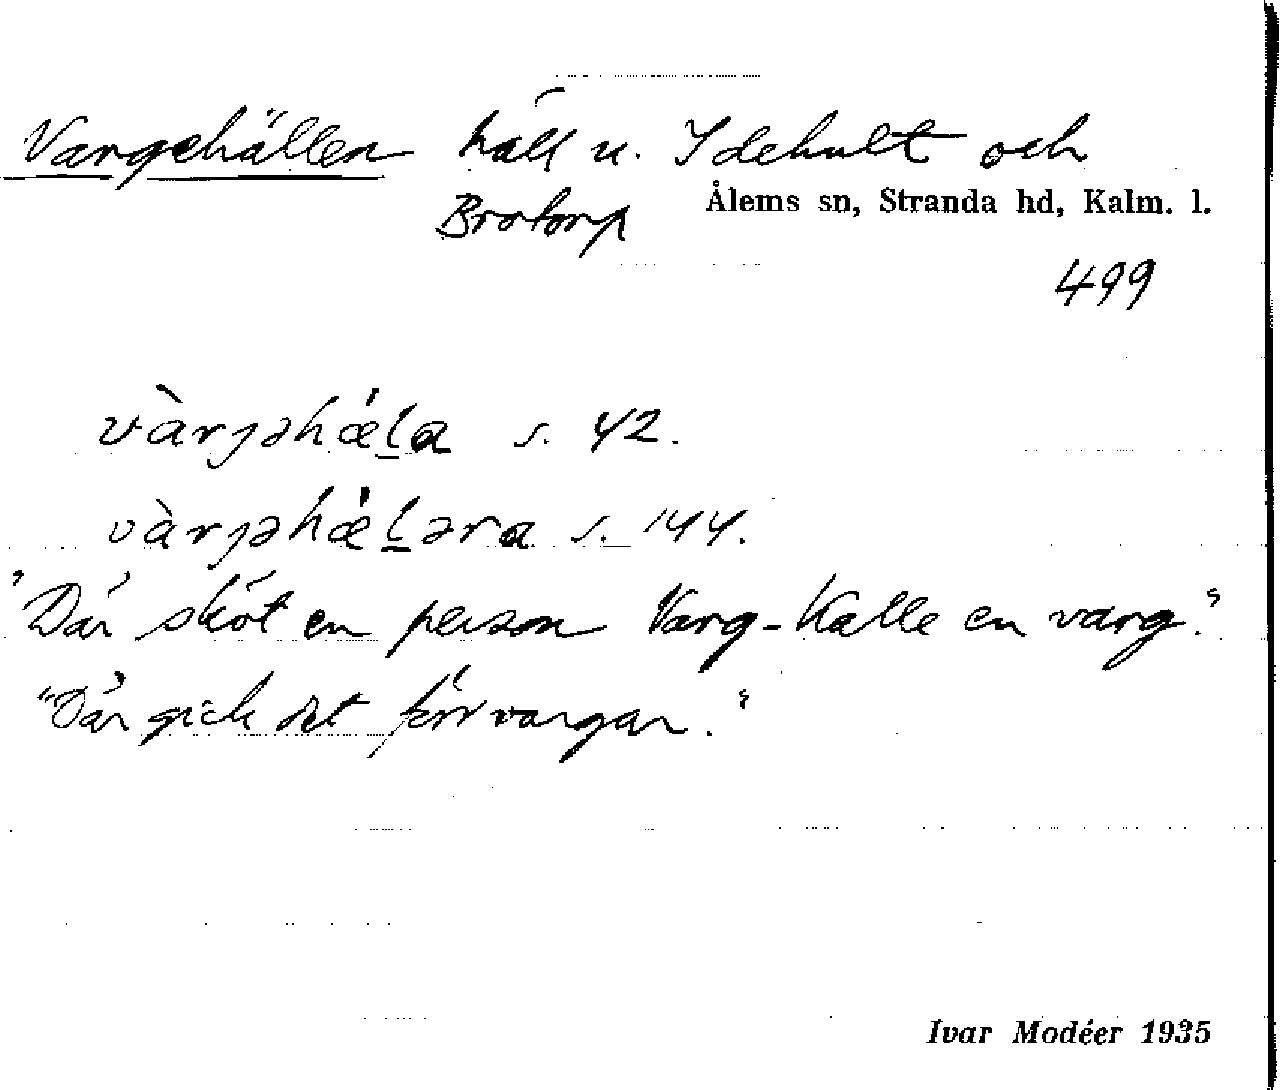 Vargehällen häll u. Idehult och
Brotorp Ålems sn, Stranda hd, Kalm. l.
499
vàrjəhǽl̲a s. 42.
vàrjəhǽl̲əra s. 144.
"Där sköt en person Varg-Kalle en varg."
"Där gick det förr vargar."
Ivar Modéer 1935